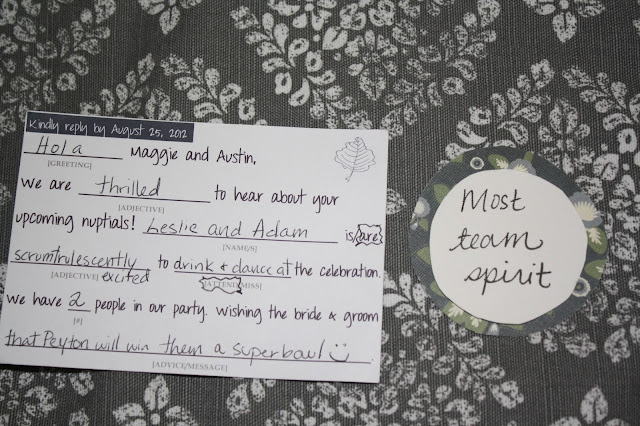 Kindly reply by August 25, 2012
Hola Maggie and Austin,
[GREETING]
we are thrilled to hear about your
[ADJECTIVE]
upcoming nuptials! Leslie and Adam is/are
[NAME/S]
scrumtrulescently to drink & dance at the celebration.
[ADJECTIVE] excited [ATTEND/MISS]
we have 2 people in our party. Wishing the bride & groom
[#]
that Peyton will win them a superbowl
[ADVICE/MESSAGE]
Most
team
spirit